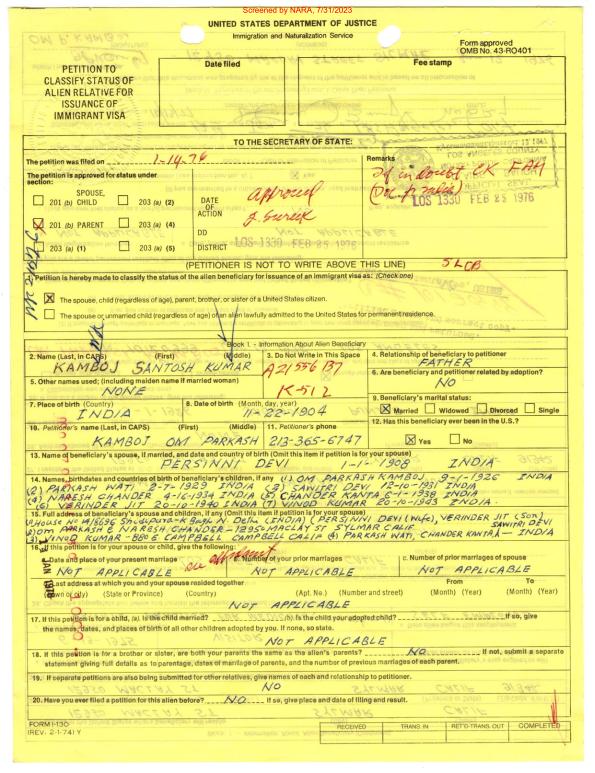 Screened by NARA, 7/31/2023
UNITED STATES DEPARTMENT OF JUSTICE
Immigration and Naturalization Service
Form approved
OMB No. 43-RO401
PETITION TO
CLASSIFY STATUS OF
ALIEN RELATIVE FOR
ISSUANCE OF
IMMIGRANT VISA
Date filed
Fee stamp
TO THE SECRETARY OF STATE:
The petition was filed on 1-14-76
Remarks
If in doubt, CK FAH
LOS 1330 FEB 25 1976
The petition is approved for status under
section:
SPOUSE,
201 (b) CHILD
203 (a) (2)
201 (b) PARENT
203 (a) (4)
203 (a) (1)
203 (a) (5)
DATE
OF
ACTION
Approved
DD
DISTRICT
LOS 1330 FEB 25 1976
(PETITIONER IS NOT TO WRITE ABOVE THIS LINE)
1. Petition is hereby made to classify the status of the alien beneficiary for issuance of an immigrant visa as: (Check one)
X The spouse, child (regardless of age), parent, brother, or sister of a United States citizen.
The spouse or unmarried child (regardless of age) of an alien lawfully admitted to the United States for permanent residence.
Block I. - Information About Alien Beneficiary
2. Name (Last, in CAPS) (First) (Middle)
KAMBOJ SANTOSH KUMAR
3. Do Not Write in This Space
A21556137
K-512
4. Relationship of beneficiary to petitioner
FATHER
5. Other names used; (including maiden name if married woman)
NONE
6. Are beneficiary and petitioner related by adoption?
NO
7. Place of birth (Country)
INDIA
8. Date of birth (Month, day, year)
11-22-1904
9. Beneficiary's marital status:
X Married Widowed Divorced Single
10. Petitioner's name (Last, in CAPS) (First) (Middle)
KAMBOJ OM PARKASH
11. Petitioner's phone
213-365-6747
12. Has this beneficiary ever been in the U.S.?
X Yes No
13. Name of beneficiary's spouse, if married, and date and country of birth (Omit this item if petition is for your spouse)
PERSINNI DEVI 1-1-1908 INDIA
14. Names, birthdates and countries of birth of beneficiary's children, if any (1) OM PARKASH KAMBOJ 9-1-1926 INDIA
(2) PARKASH WATI 2-7-1929 INDIA (3) SAWITRI DEVI 12-10-1931 INDIA
(4) NARESH CHANDER 4-16-1934 INDIA (5) CHANDER KANTA 6-1-1938 INDIA
(6) VERINDER JIT 20-10-1940 INDIA (7) VINOD KUMAR 20-10-1943 INDIA
15. Full address of beneficiary's spouse and children, if any (Omit this item if petition is for your spouse)
N. Delhi (INDIA) (PERSINNI DEVI (Wife), VERINDER JIT (Son)
SAWITRI DEVI
(2) OM PARKASH & NARESH CHANDER-12950 MACLAY ST SYLMAR CALIF
(3) VINOD KUMAR-880 E CAMPBELL CAMPBELL CALIF (4) PARKASH WATI, CHANDER KANTA - INDIA
16. If this petition is for your spouse or child, give the following:
Date and place of your present marriage
NOT APPLICABLE
b. Number of your prior marriages
NOT APPLICABLE
c. Number of prior marriages of spouse
NOT APPLICABLE
Last address at which you and your spouse resided together
From To
(Town or city) (State or Province) (Country) (Apt. No.) (Number and street) (Month) (Year) (Month) (Year)
NOT APPLICABLE
17. If this petition is for a child, (a). Is the child married? (b). Is the child your adopted child? If so, give
the names, dates, and places of birth of all other children adopted by you. If none, so state.
NOT APPLICABLE
18. If this petition is for a brother or sister, are both your parents the same as the alien's parents? NO If not, submit a separate
statement giving full details as to parentage, dates of marriage of parents, and the number of previous marriages of each parent.
19. If separate petitions are also being submitted for other relatives, give names of each and relationship to petitioner.
NO
20. Have you ever filed a petition for this alien before? NO If so, give place and date of filing and result.
FORM I-130
(REV. 2-1-74) Y
RECEIVED
TRANS. IN
RET'D-TRANS. OUT
COMPLETED